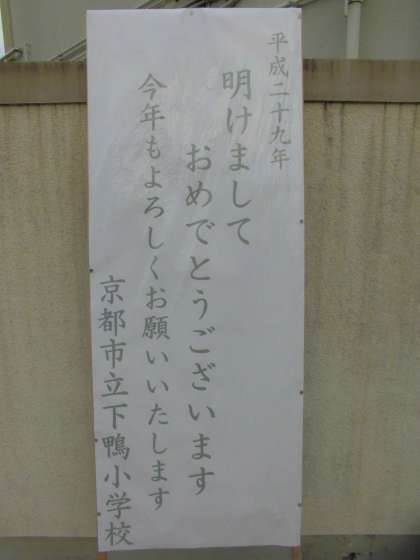 平成二十九年
明けまして
おめでとうございます
今年もよろしくお願いいたします
京都市立下鴨小学校